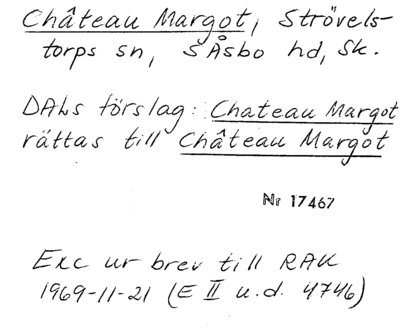 Château Margot, Strövels-
torps sn, SÅsbo hd, Sk.
DALs förslag: Chateau Margot
rättas till Château Margot
Nr 17467
Exc ur brev till RAK
1969-11-21 (E II u.d. 4746)